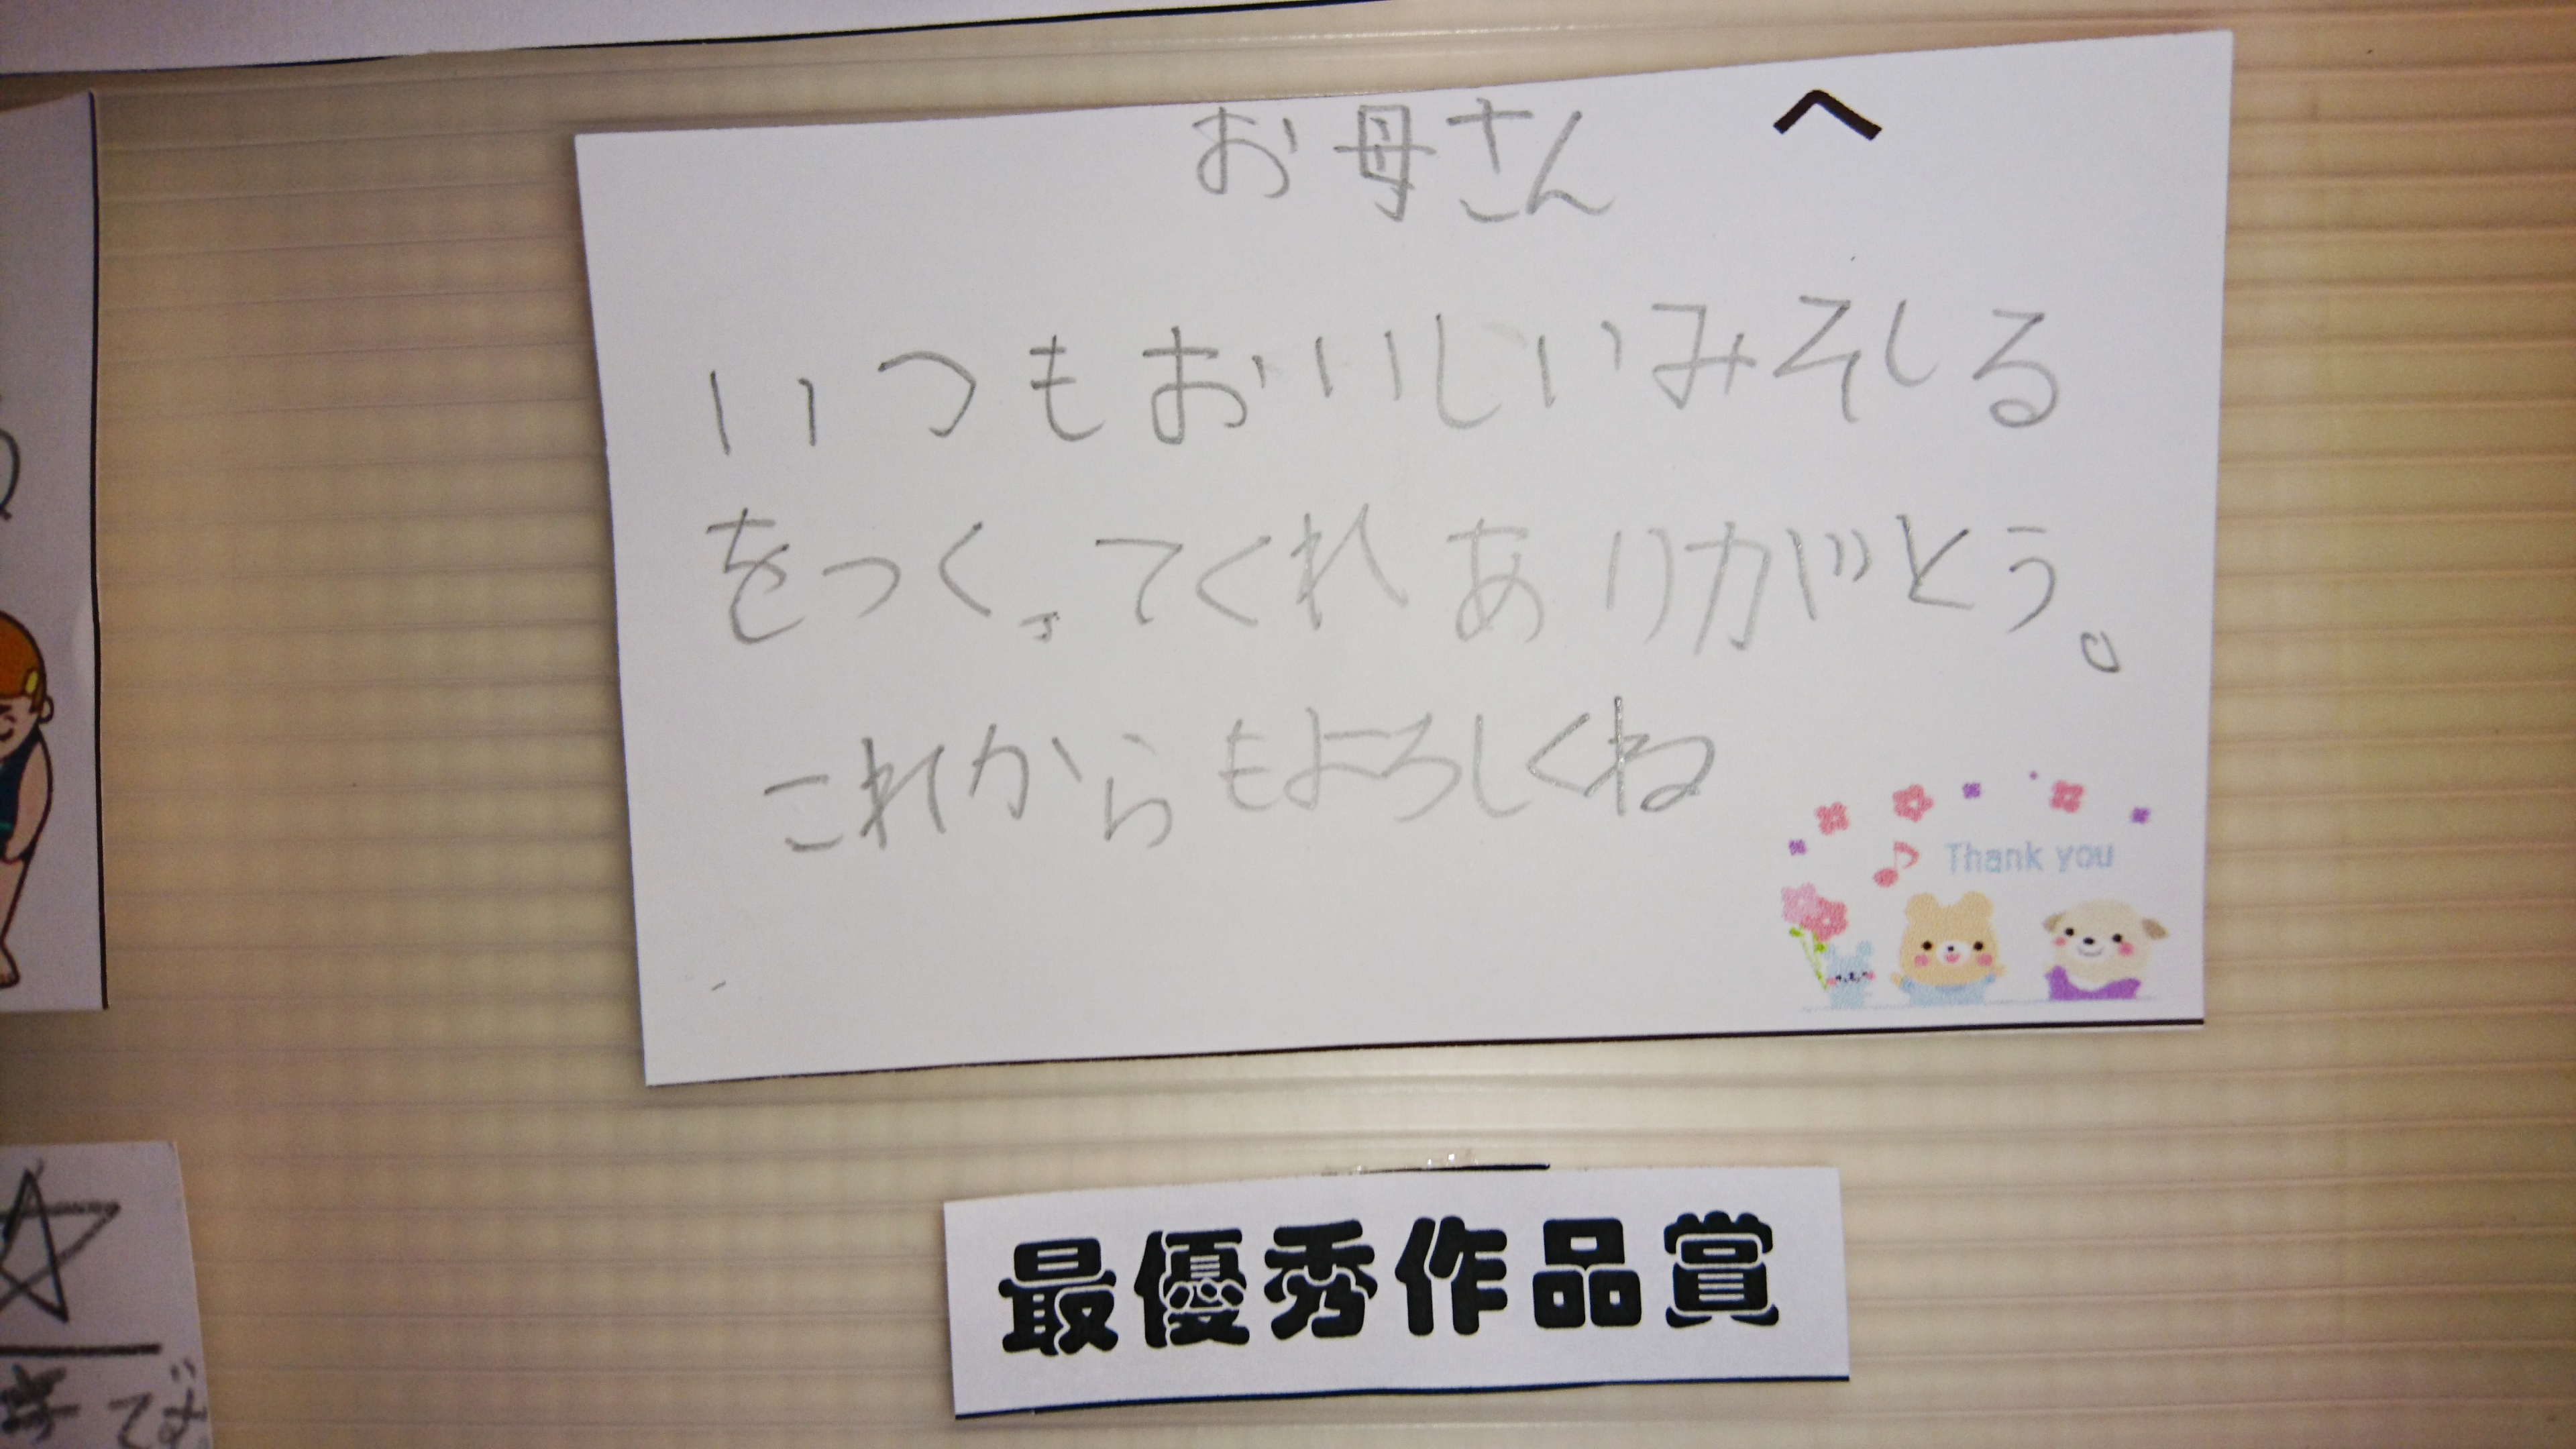 お母さん へ
いつもおいしいみそしる
をつくってくれありがとう。
これからもよろしくね
Thank you
最優秀作品賞